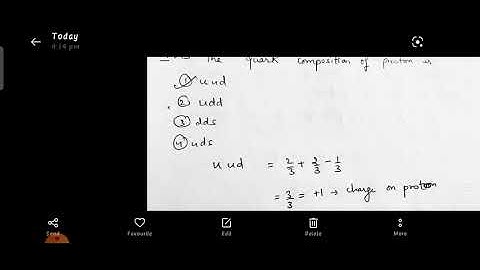 Today
4:14 pm
The quark composition of proton is
① uud
② udd
③ dds
④ uds
uud = 2/3 + 2/3 - 1/3
= 3/3 = +1 → charge on proton
Send
Favourite
Edit
Delete
More